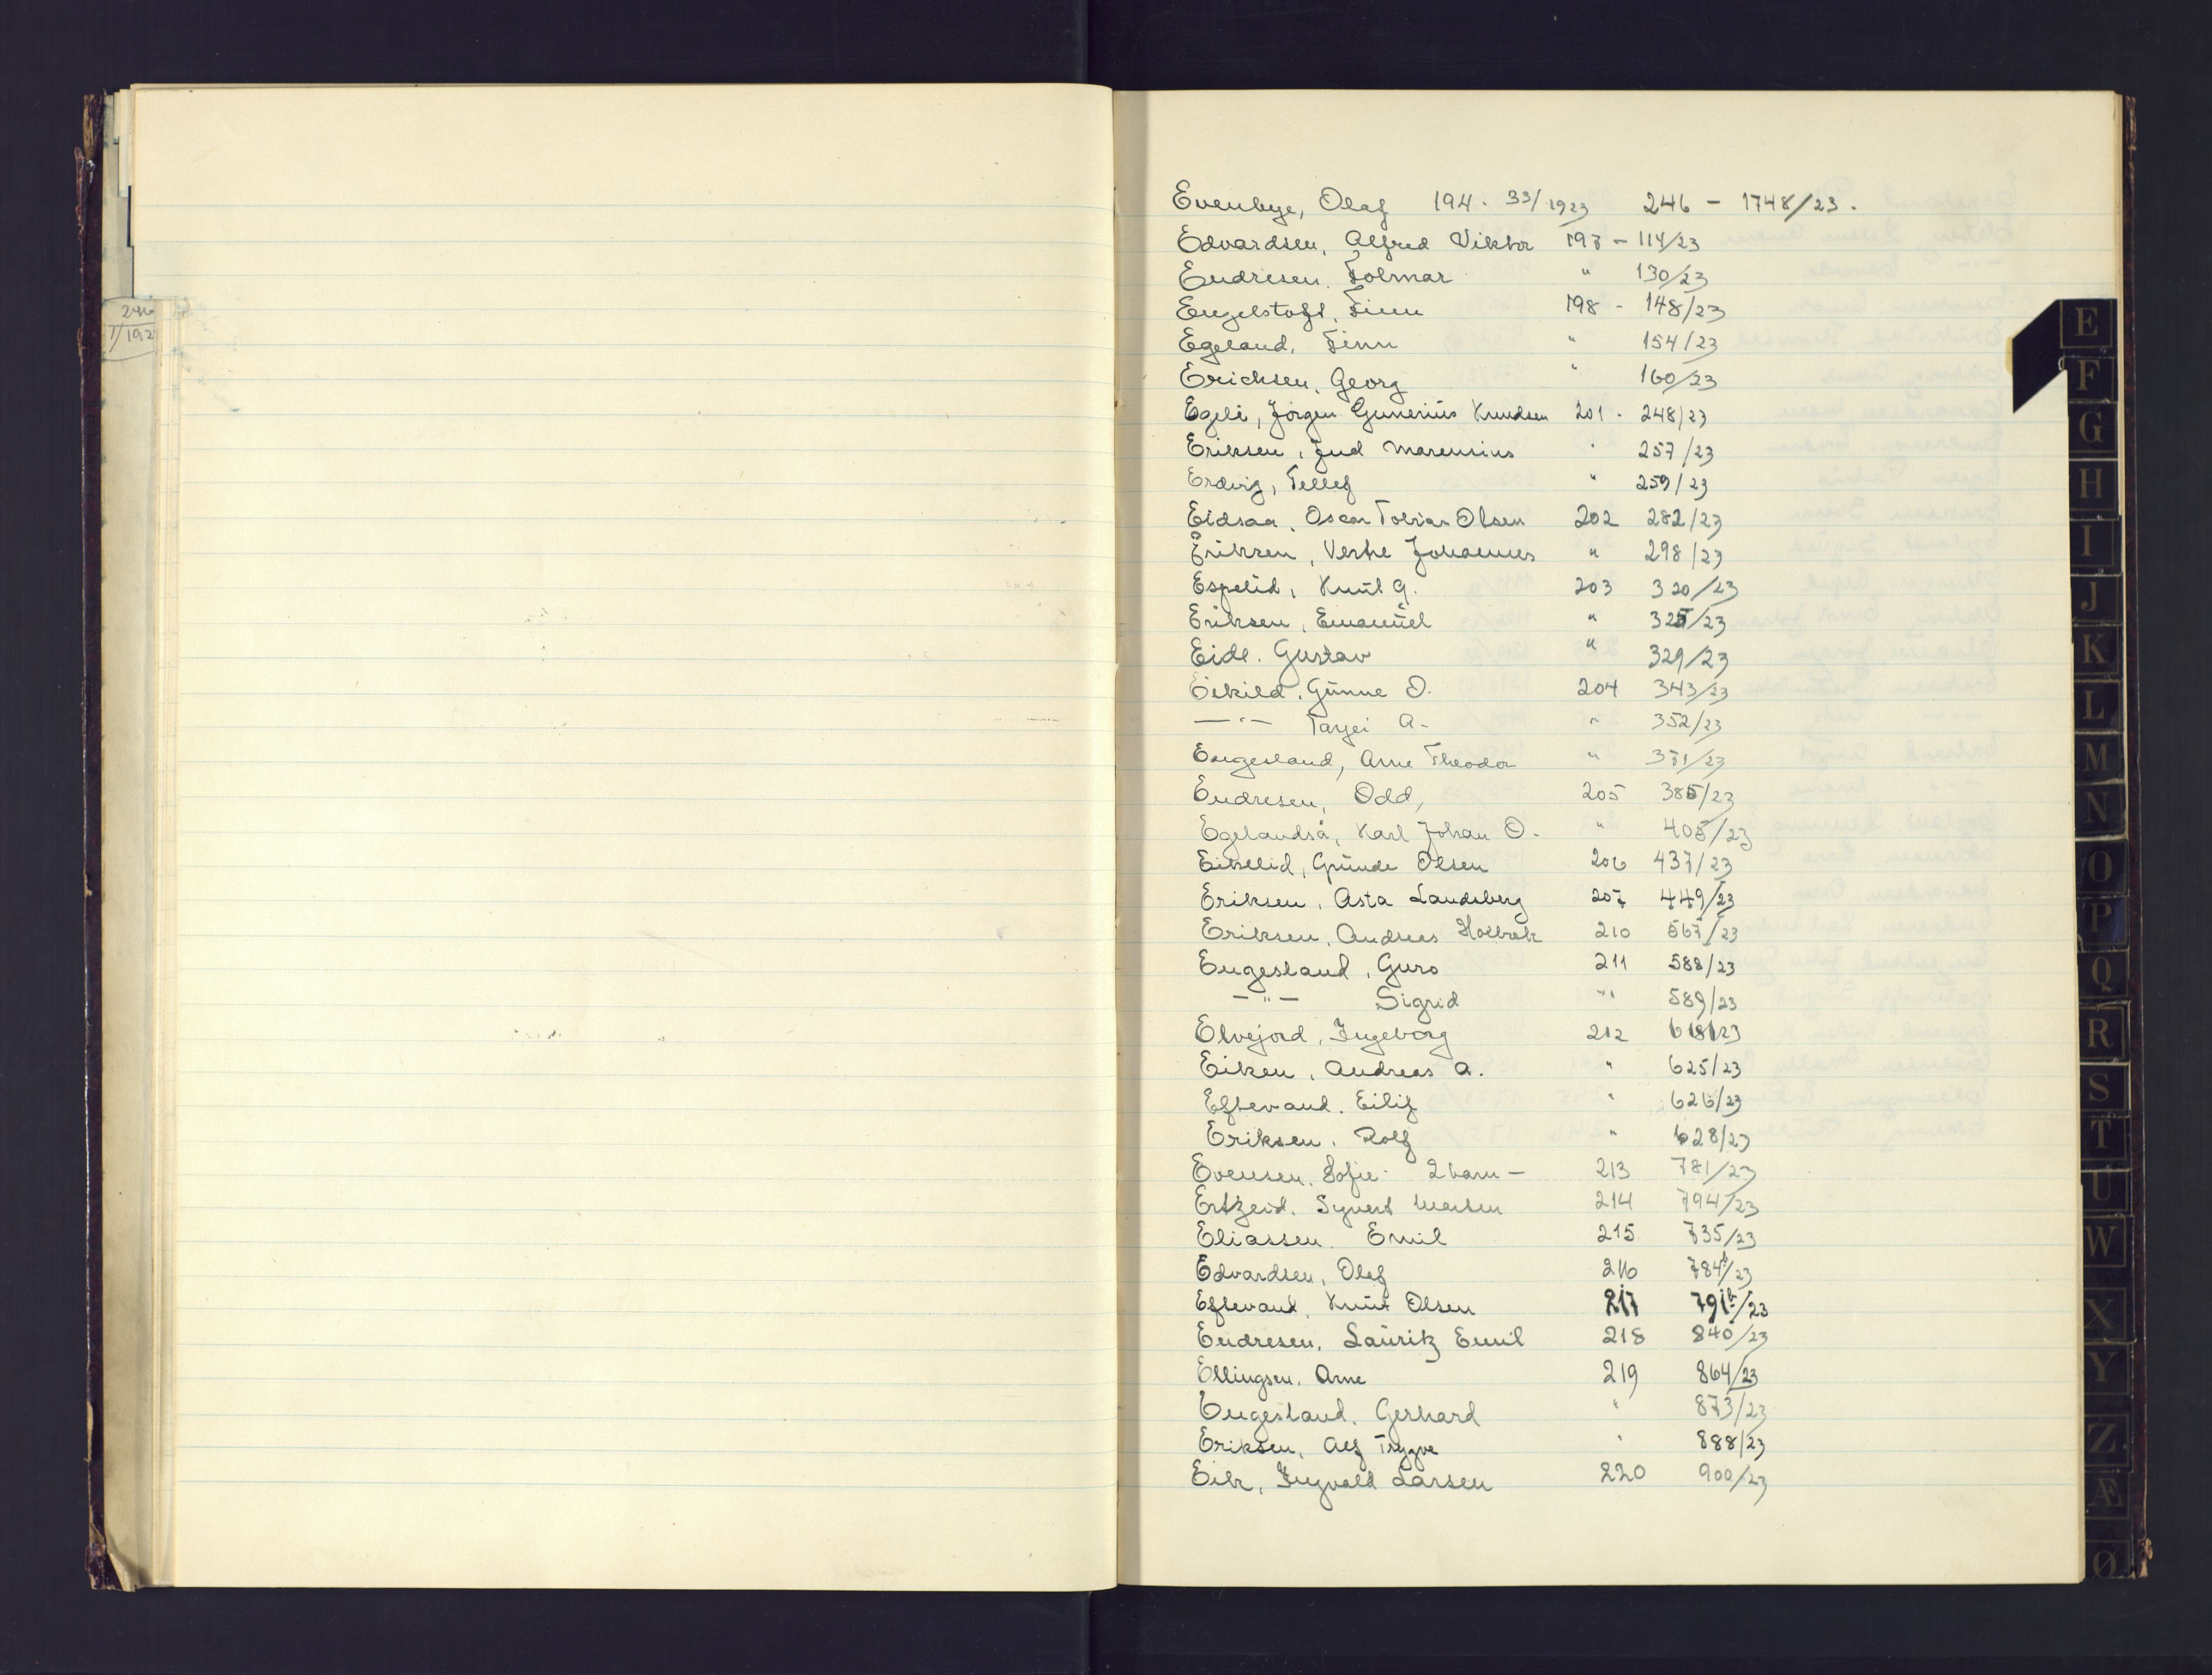 246
1/192
Evenbye, Olaf 194 - 33/1923 246 - 1748/23.
Edvardsen, Alfred Viktor 197 - 114/23
Endresen. Folmar " 130/23
Engelstoft, Finn 198 - 148/23
Egeland, Finn " 154/23
Erichsen, Georg " 160/23
Egeli, Jörgen Gunerius Knudsen 201 - 248/23
Eriksen, Jud Marensius " 257/23
Erdvig, Tellef " 259/23
Eidsaa, Oscar Tobias Olsen 202 282/23
Eriksen, Johannes " 298/23
Espelid, Knut G. 203 320/23
Eriksen, Emanuel " 325/23
Eide. Gustav " 329/23
Eikild, Gunne O. 204 343/23
—"— Tarjei A. " 352/23
Engesland, Arne Theodor " 371/23
Endresen, Odd, 205 385/23
Egelandså, Karl Johan O. " 405/23
Eikelid, Gunde Olsen 206 437/23
Eriksen, Asta Landsberg 207 449/23
Eriksen, Andreas Holbæk 210 567/23
Engesland, Guro 211 588/23
—"— Sigrid " 589/23
Elvejord, Ingeborg 212 618/23
Eiken, Andreas A. " 625/23
Eftevand. Eilif " 626/23
Eriksen, Rolf " 628/23
Evensen. Sofie - 2 barn - 213 781/23
Ertzeid. Syvert 214 794/23
Eliassen. Emil 215 735/23
Edvardsen, Olaf 216 784b/23
Eftevand, Knut Olsen 217 791b/23
Endresen, Lauritz Emil 218 840/23
Ellingsen, Arne 219 864/23
Engesland, Gerhard " 873/23
Eriksen, Alf Trygve " 888/23
Eik, Ingvald Larsen 220 900/23
E
F
G
H
I
J
K
L
M
N
O
P
Q
R
S
T
U
W
X
Y
Z
Æ
Ø